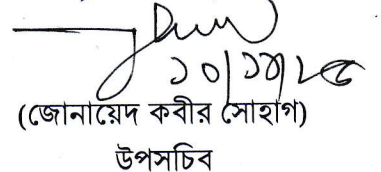 ১০/১২/২৫
(জোনায়েদ কবীর সোহাগ)
উপসচিব